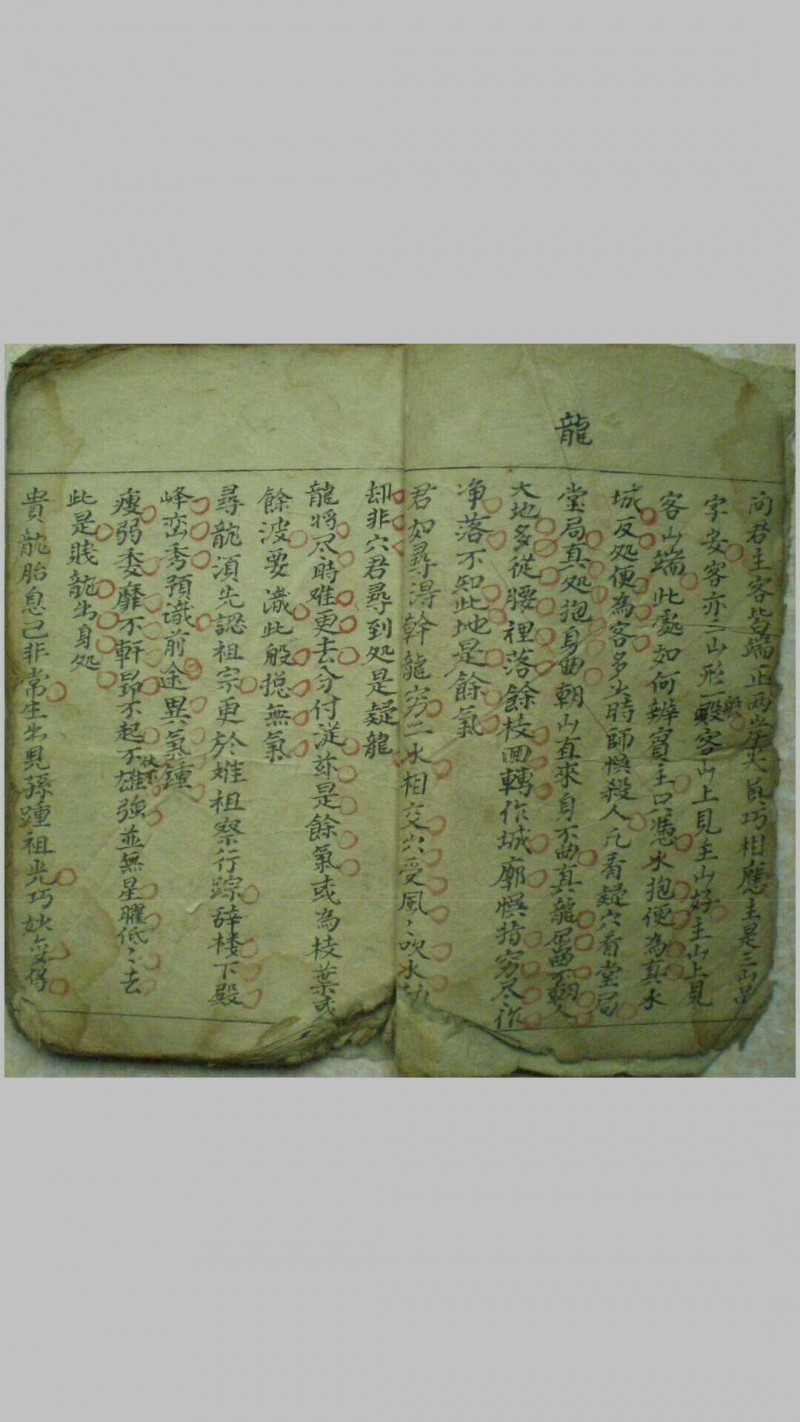 龍
問君主客皆端正両岸尖員巧相應主是三山品
字安客亦三山形一般客山上見主山好主山上見
客山端此處如何辨賓主只憑水抱便為真水
城反処便為客多少時師悮殺人凡看疑穴看堂局
堂局真処抱身曲朝山直來身不曲真龍屈曲朝人
大地多從腰裡落餘枝囬轉作城廓悮指穷尽作
净落不知此地是餘氣
君如尋淂幹龍穷二水相交穴受風〻吹水劫
却非穴君尋到処是疑龍
龍將尽時难更去分付漇玆是餘氣或為枝葉或
餘波要識此般揔無氣
尋龍湏先認祖宗更於雉祖察行踪辞楼下殿
峰峦秀預識前途異氣鍾
瘦弱委靡不軒昂不起不雄強並無星曜低〻去
此是賎龍出身処
貴龍胎息已非常生出児孫踵祖光巧妙